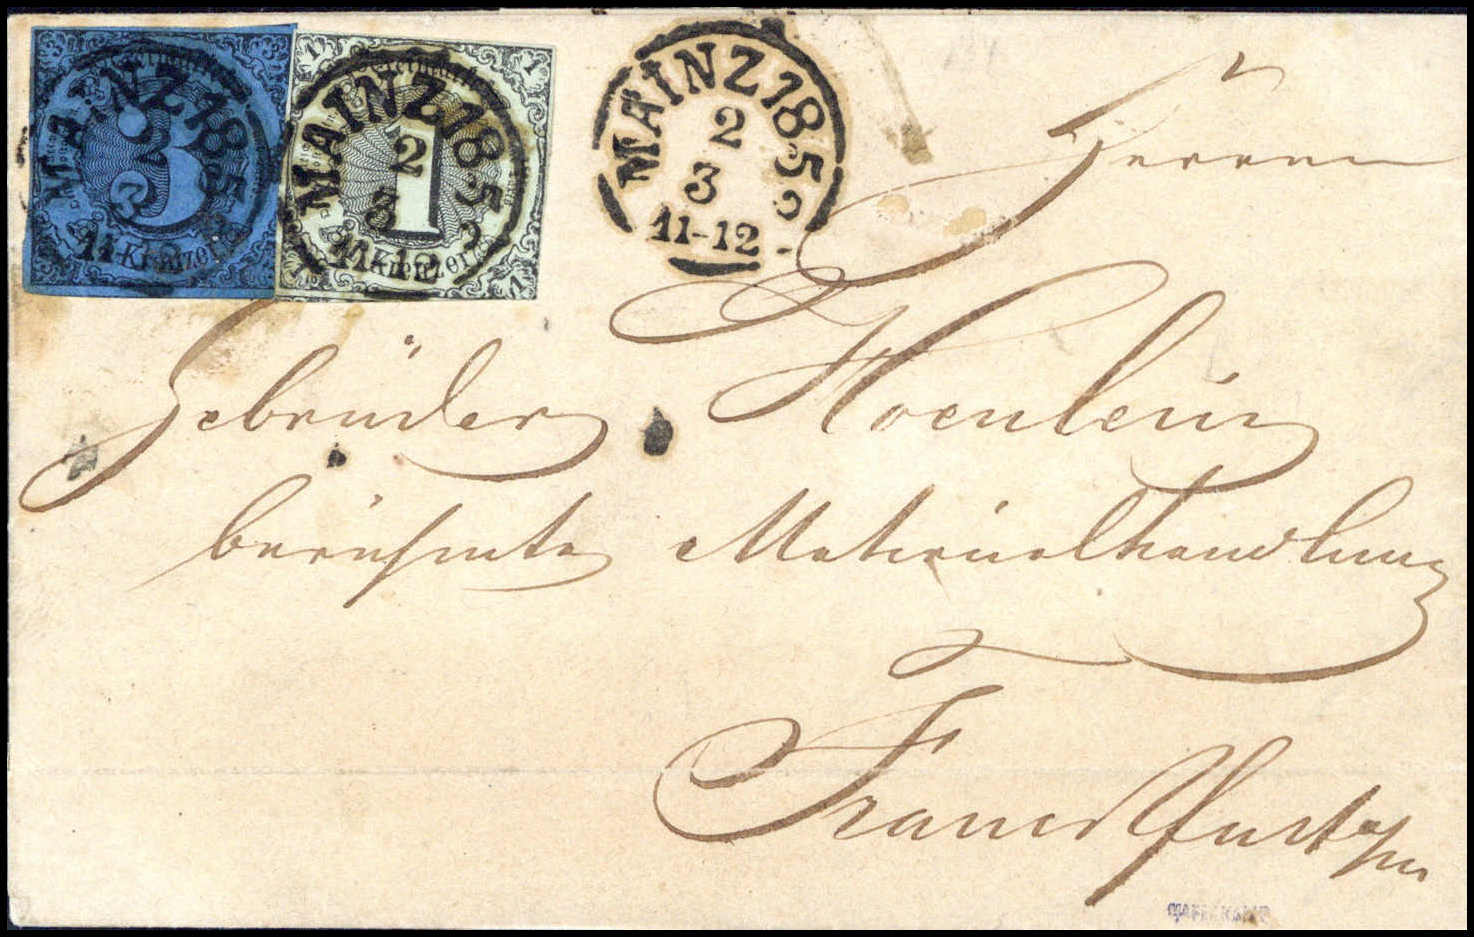 MAINZ 185
2
3
11-12
3
Kreuzer
MAINZ 185
2
3
11-12
1
Kreuzer
MAINZ 185
2
3
11-12
Herren
Gebrüder Hoenlein
berühmte Materialhandlung
Francfurt a/m